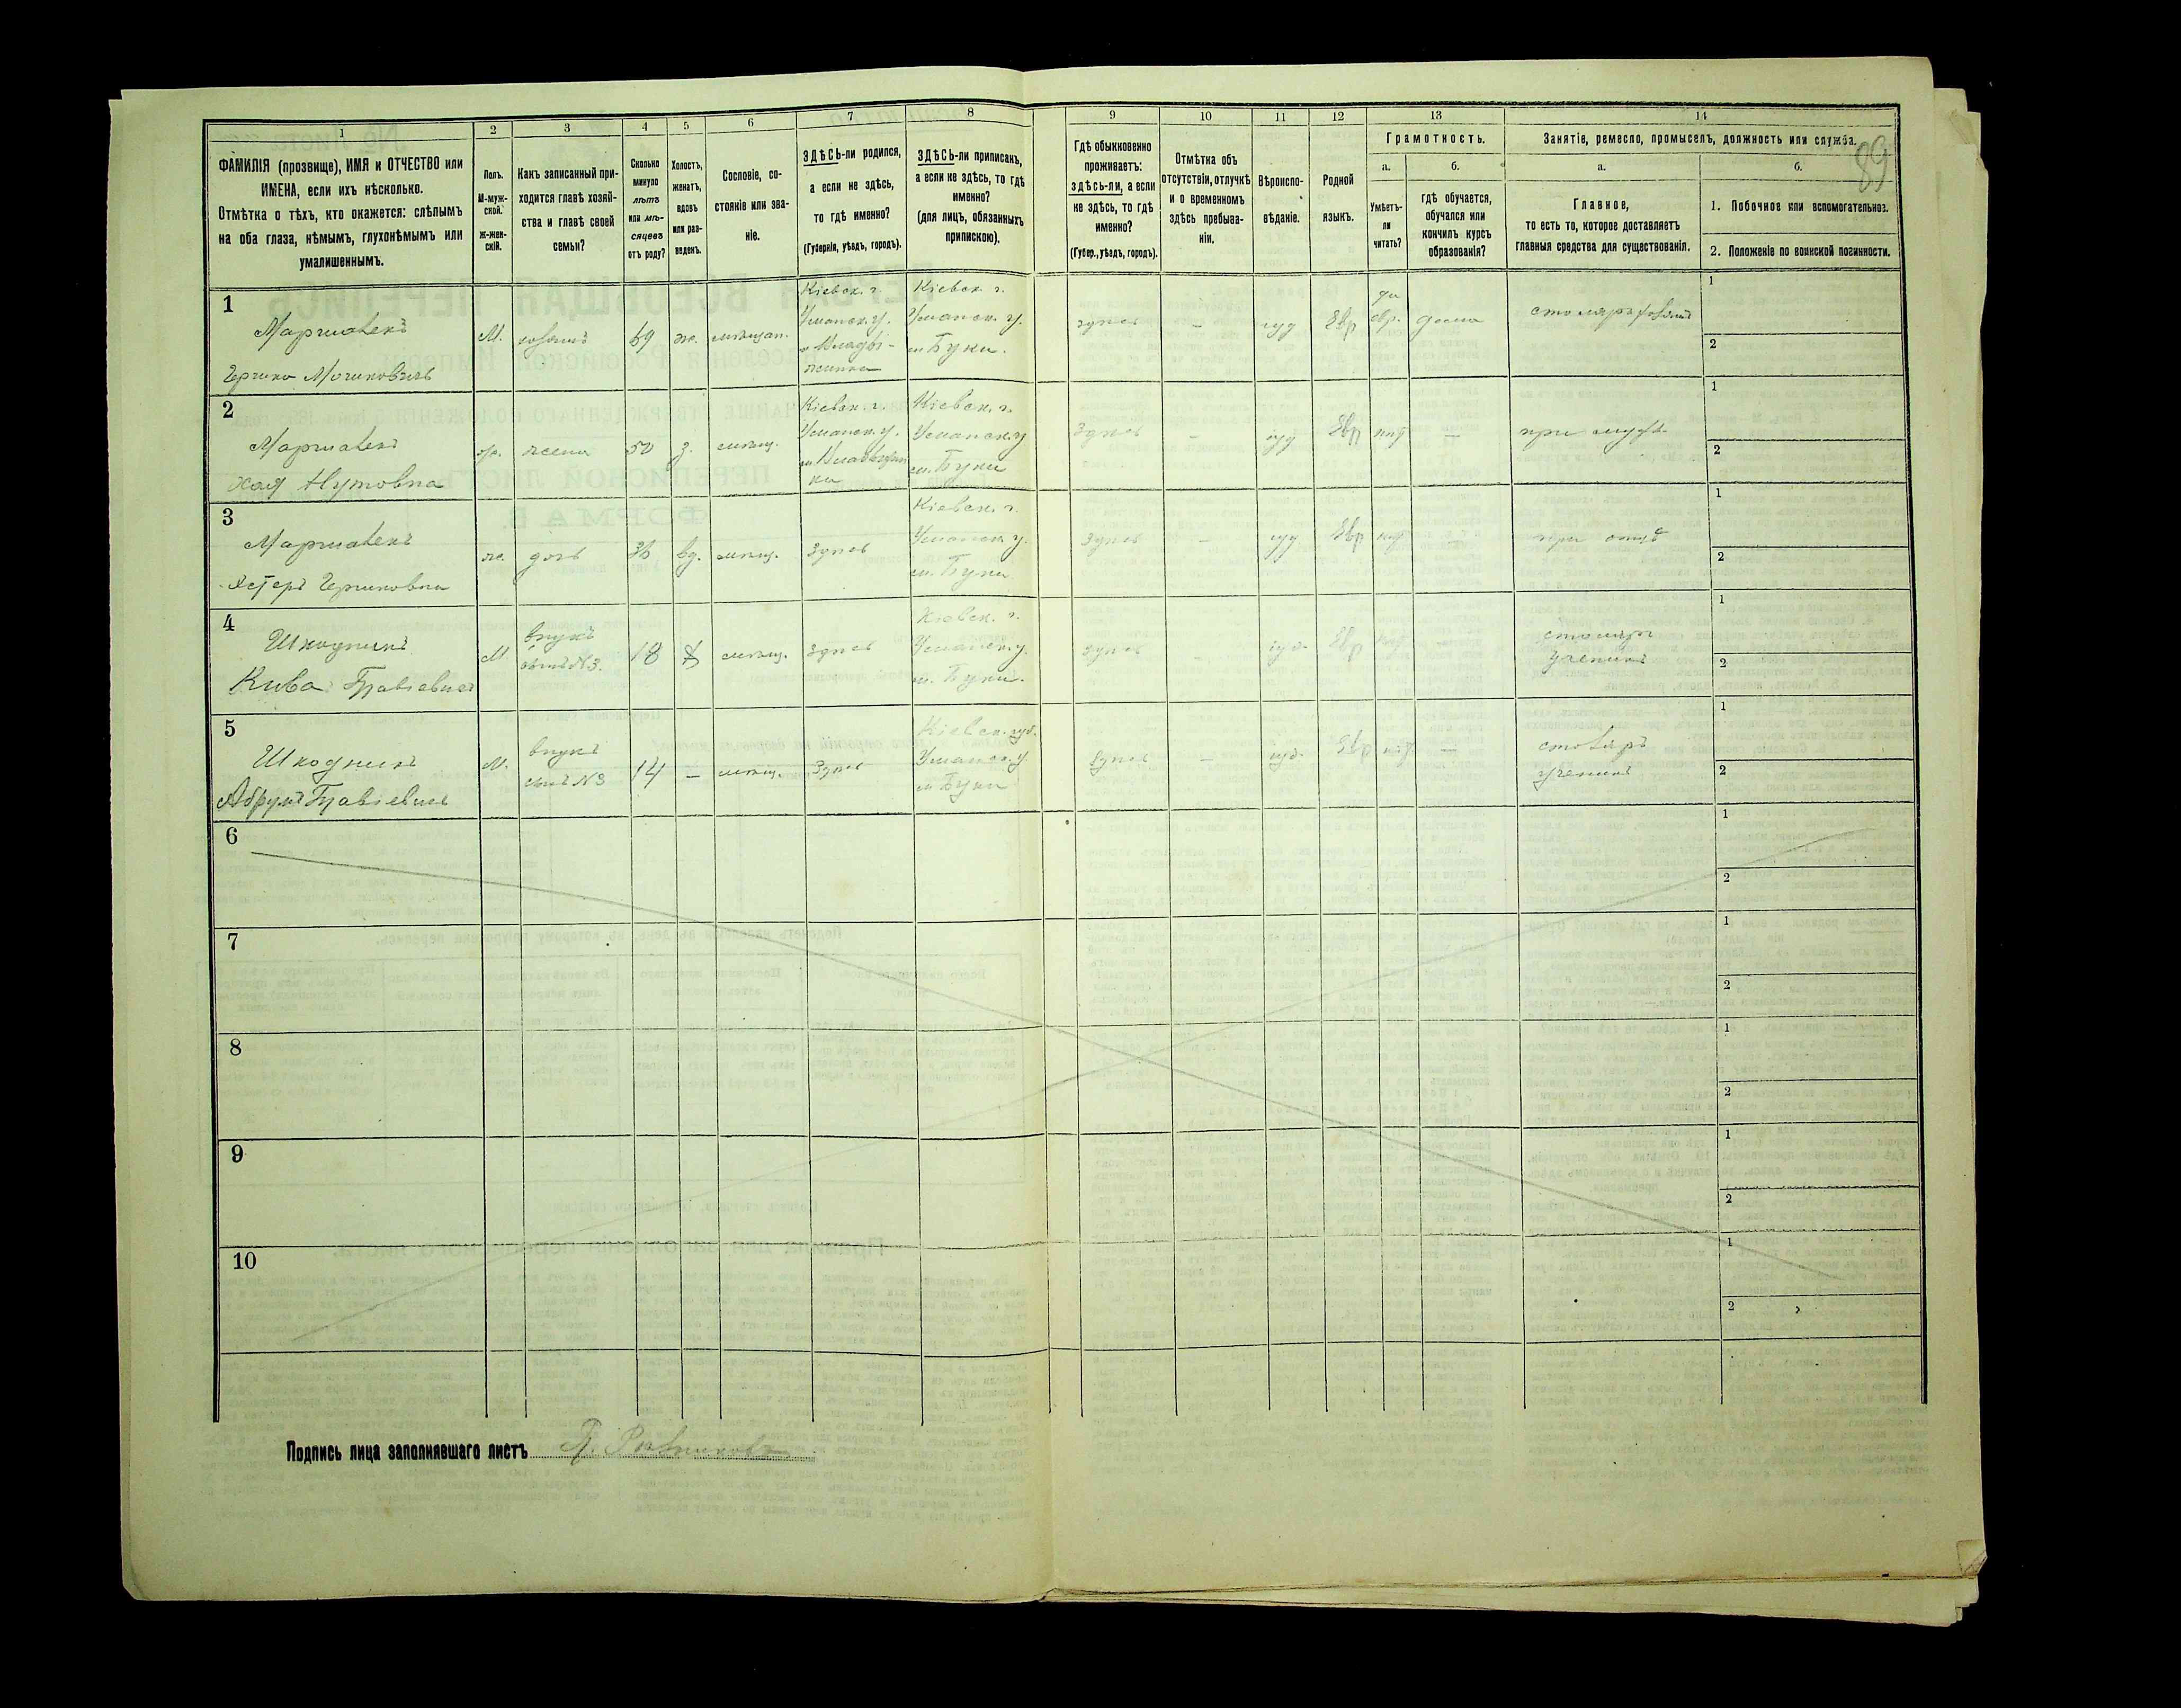 1
2
3
4
5
6
7
8
9
10
11
12
13
14
89
ФАМИЛІЯ (прозвище), ИМЯ и ОТЧЕСТВО или
ИМЕНА, если ихъ нѣсколько.
Отмѣтка о тѣхъ, кто окажется: слѣпымъ
на оба глаза, нѣмымъ, глухонѣмымъ или
умалишеннымъ.
Полъ.
М-муж-
ской.
Ж-жен-
скій.
Какъ записанный при-
ходится главѣ хозяй-
ства и главѣ своей
семьи?
Сколько
минуло
лѣтъ
или мѣ-
сяцевъ
отъ роду?
Холостъ,
женатъ,
вдовъ
или раз-
веденъ.
Сословіе, со-
стояніе или зва-
ніе.
ЗДѢСЬ-ли родился,
а если не здѣсь,
то гдѣ именно?
(Губернія, уѣздъ, городъ).
ЗДѢСЬ-ли приписанъ,
а если не здѣсь, то гдѣ
именно?
(для лицъ, обязанныхъ
припискою).
Гдѣ обыкновенно
проживаетъ:
здѣсь-ли, а если
не здѣсь, то гдѣ
именно?
(Губер., уѣздъ, городъ).
Отмѣтка объ
отсутствіи, отлучкѣ
и о временномъ
здѣсь пребыва-
ніи.
Вѣроиспо-
вѣданіе.
Родной
языкъ.
Грамотность.
а.
Умѣетъ-
ли
читать?
б.
гдѣ обучается,
обучался или
кончилъ курсъ
образованія?
Занятіе, ремесло, промыселъ, должность или служба.
а.
Главное,
то есть то, которое доставляетъ
главныя средства для существованія.
б.
1. Побочное или вспомогательноэ.
2. Положеніе по воинской повинности.
1
М.
69
же.
мѣщан.
Кіевск. г.
Уманск. у.
Кіевск. г.
Уманск. у.
м. Буки.
здѣсь
—
іуд
Евр
да
евр.
дома
столяръ
1
2
2
Хая Нутовна
ж.
жена
50
з.
мѣщ.
Кіевск. г.
Уманск. у.
Кіевск. г.
Уманск. у
м. Буки
здѣсь
—
іуд
Евр
нѣт
—
при мужѣ
1
2
3
же.
дочь
36
вд.
мѣщ.
здѣсь
Кіевск. г.
Уманск. у.
м. Буки
здѣсь
—
іуд
Евр
нѣт
при отцѣ
1
2
4
Шкодникъ
Кива
М
внукъ
сынъ №3.
18
мѣщ.
здѣсь
Кіевск. г.
Уманск. у.
м. Буки.
здѣсь
—
іуд.
Евр
нѣт
—
столяръ
ученикъ
1
2
5
Шкодникъ
Абрумъ
М.
внукъ
сынъ №3
14
—
мѣщ.
Здѣсь
Кіевск. губ.
Уманск. у.
м Буки
здѣсь
—
іуд.
Евр
нѣт
—
столяръ
ученикъ
1
2
6
1
2
7
1
2
8
1
2
9
1
2
10
1
2
Подпись лица заполнявшаго листъ